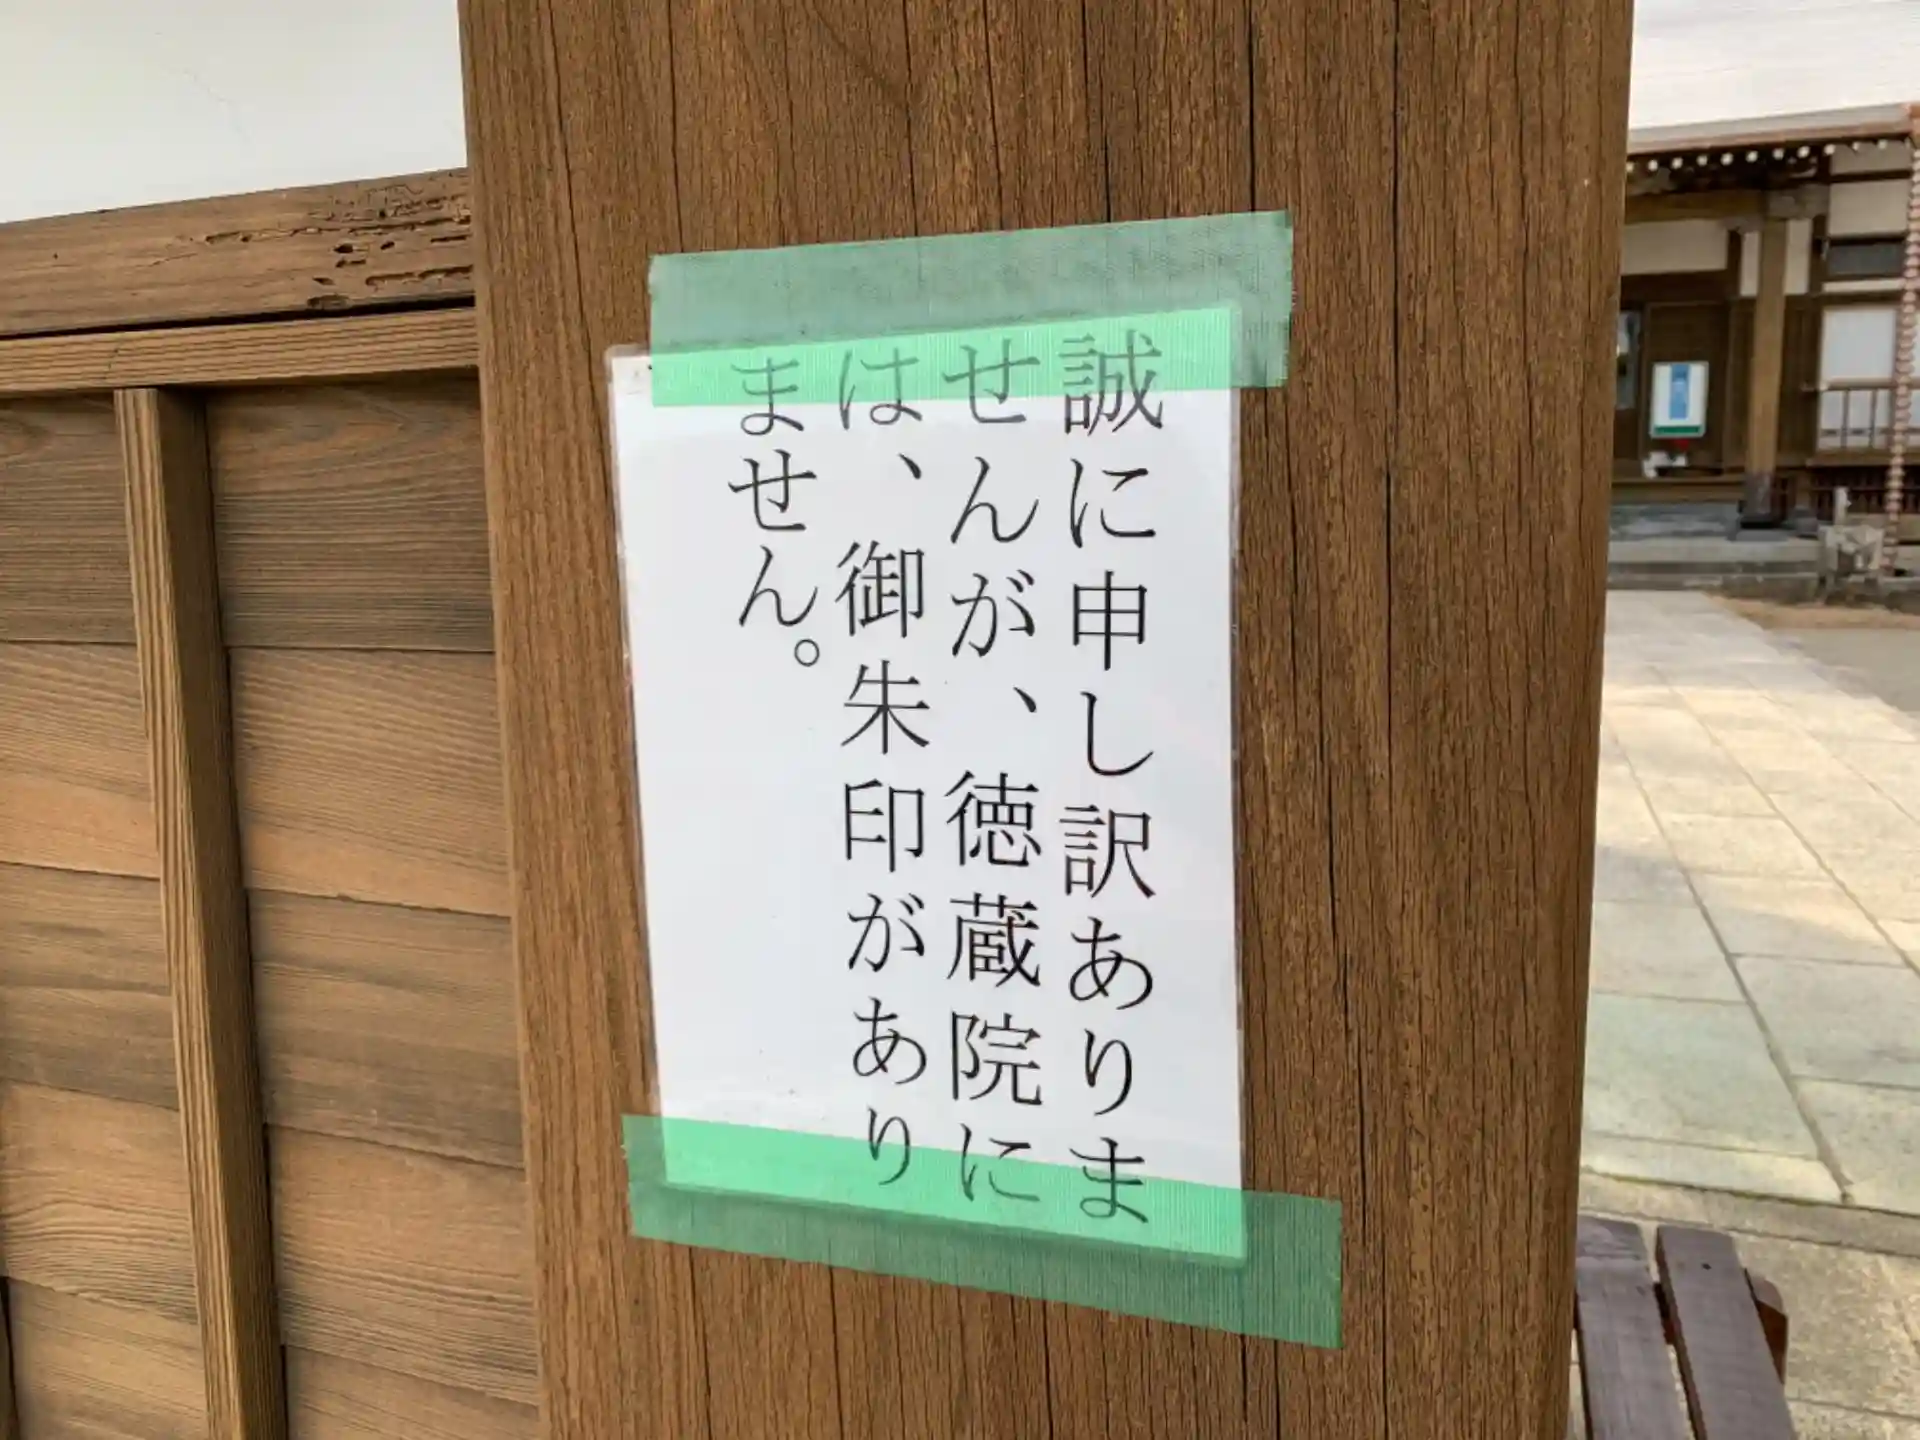 誠に申し訳ありま
せんが、徳蔵院に
は、御朱印があり
ません。